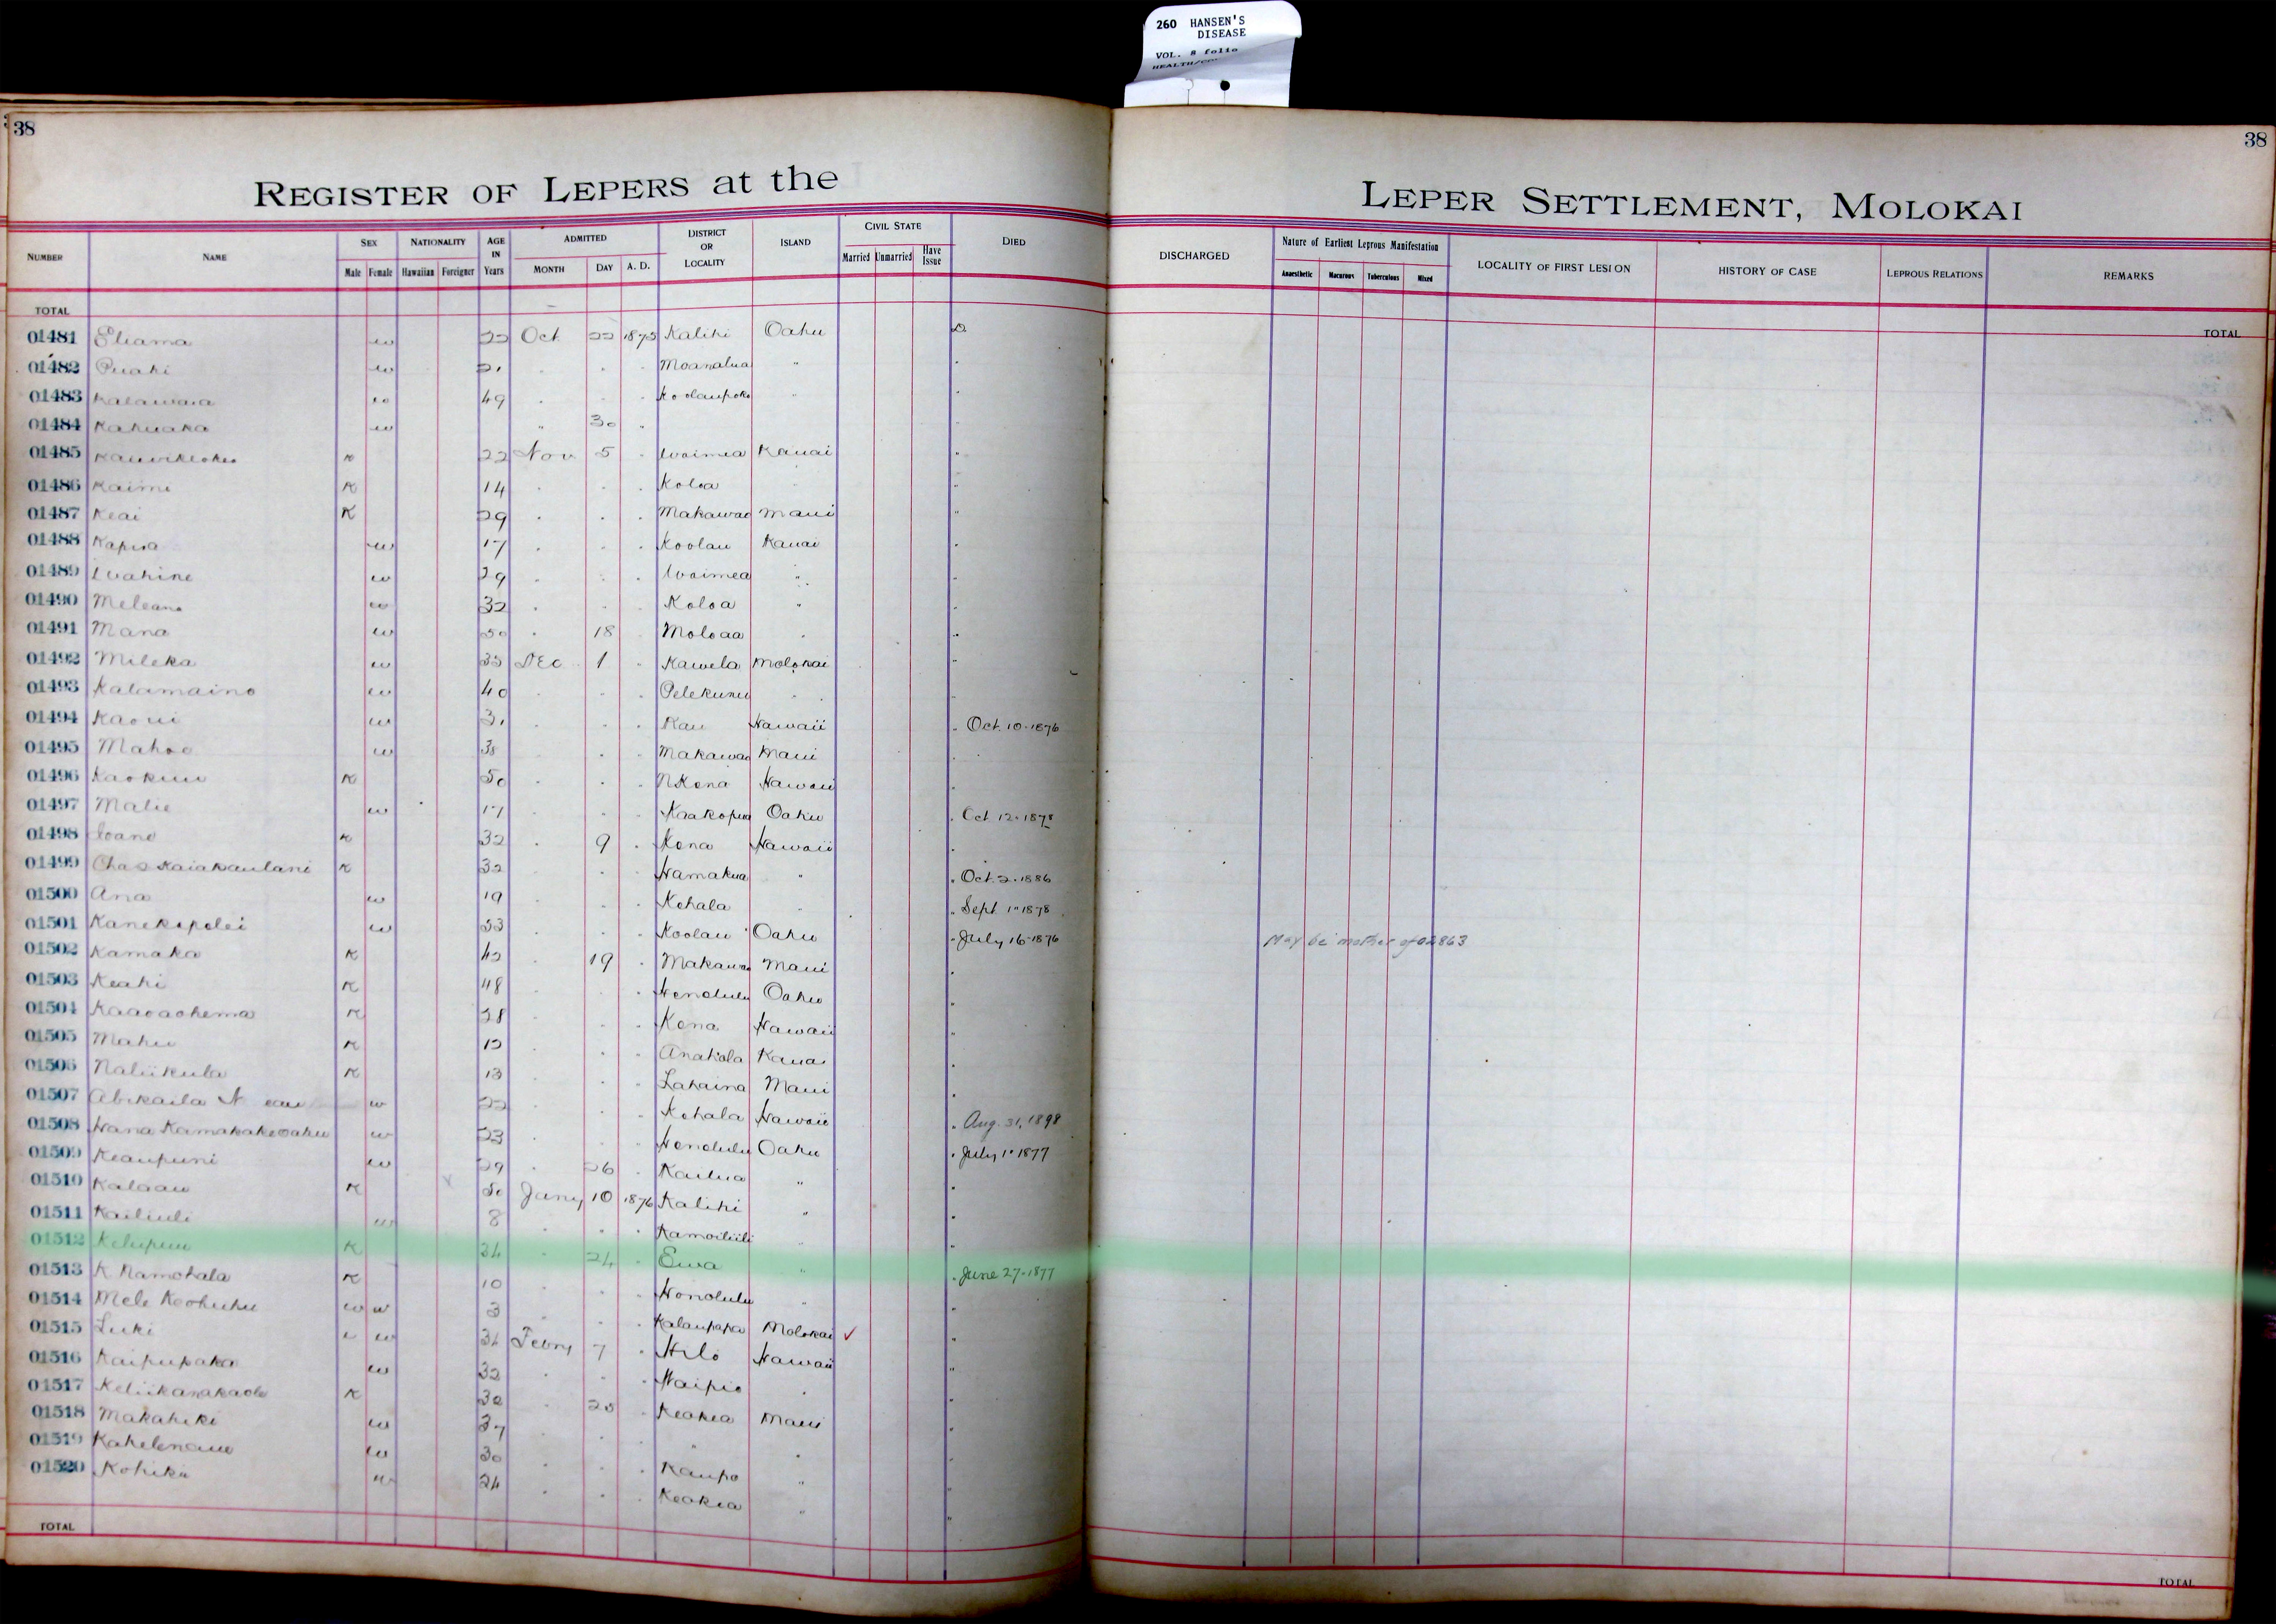 260 HANSEN'S
DISEASE
VOL. 8 folio
38
38
REGISTER OF LEPERS at the LEPER SETTLEMENT, MOLOKAI
NUMBER NAME SEX Male Female NATIONALITY Hawaiian Foreigner AGE IN Years ADMITTED MONTH DAY A. D. DISTRICT OR LOCALITY ISLAND CIVIL STATE Married Unmarried Have Issue DIED DISCHARGED Nature of Earliest Leprous Manifestation Anaesthetic Macurous Tuberculous Mixed LOCALITY OF FIRST LESION HISTORY OF CASE LEPROUS RELATIONS REMARKS
TOTAL TOTAL
01481 Eliama w 22 Oct 22 1875 Kalihi Oahu D
01482 Puahi w " " " Moanalua "
01483 w 49 " " " Koolaupoko "
01484 Kahuaka w " 30 "
01485 K 22 Nov 5 " Waimea Kauai "
01486 Kaimi K 14 " " " Koloa "
01487 Keai K 29 " " " Makawao Maui "
01488 w 17 " " " Koolau Kauai "
01489 Wahine w 29 " " " Waimea " "
01490 Meleana w 32 " " " Koloa " "
01491 Mana w 50 " 18 Moloaa " "
01492 Mileka w 35 Dec 1 " Kawela Molokai "
01493 Kalamaino w 40 " " " Pelekunu " "
01494 Kaoui w 31 " " " Kau Hawaii " Oct. 10-1876
01495 Mahoe w 38 " " Makawao Maui "
01496 Kaokuu K 50 " " " N Kona Hawaii "
01497 Malie w 17 " " " Kaakopua Oahu " Oct 12-1878
01498 Ioane K 32 " 9 " Kona Hawaii "
01499 Chas Kaiakaulani K 32 " " " Hamakua " " Oct. 2-1886
01500 Ana w 19 " " " Kohala " " Sept 1-1878
01501 Kanekapolei w 53 " " " Koolau Oahu " July 16-1876 May be mother of 02863
01502 Kamaka K 42 " 19 " Makawao Maui "
01503 Keahi K 48 " " " Honolulu Oahu "
01504 Kaaoaohema K 28 " " " Kona Hawaii "
01505 Mahu K 12 " " " Anahola Kauai "
01506 Naliikula K 13 " " " Lahaina Maui "
01507 Abikaila N w 22 " " " Kohala Hawaii " Aug. 31, 1898
01508 Hana Kamakakeoahu w 23 " " " Honolulu Oahu " July 1-1877
01509 Keaupuni w 29 " 26 " Kailua " "
01510 Kalaau K 50 Jany 10 1876 Kalihi " "
01511 Kailiuli w 8 " " " Kamoiliili " "
01512 K 34 " 24 " Ewa " " June 27-1877
01513 K Namohala K 10 " " " Honolulu " "
01514 Mele Keohuhu w w 3 " " " Kalaupapa Molokai ✓ "
01515 Luki w 34 Febry 7 " Hilo Hawaii "
01516 Kaipupaka w 32 " " " Waipio " "
01517 Keliikanakaole K 30 " 20 " Keokea Maui "
01518 Makahiki w 37 " " " " "
01519 w 30 " " " Kaupo " "
01520 Kohika w 24 " " " Keokea " "
TOTAL TOTAL